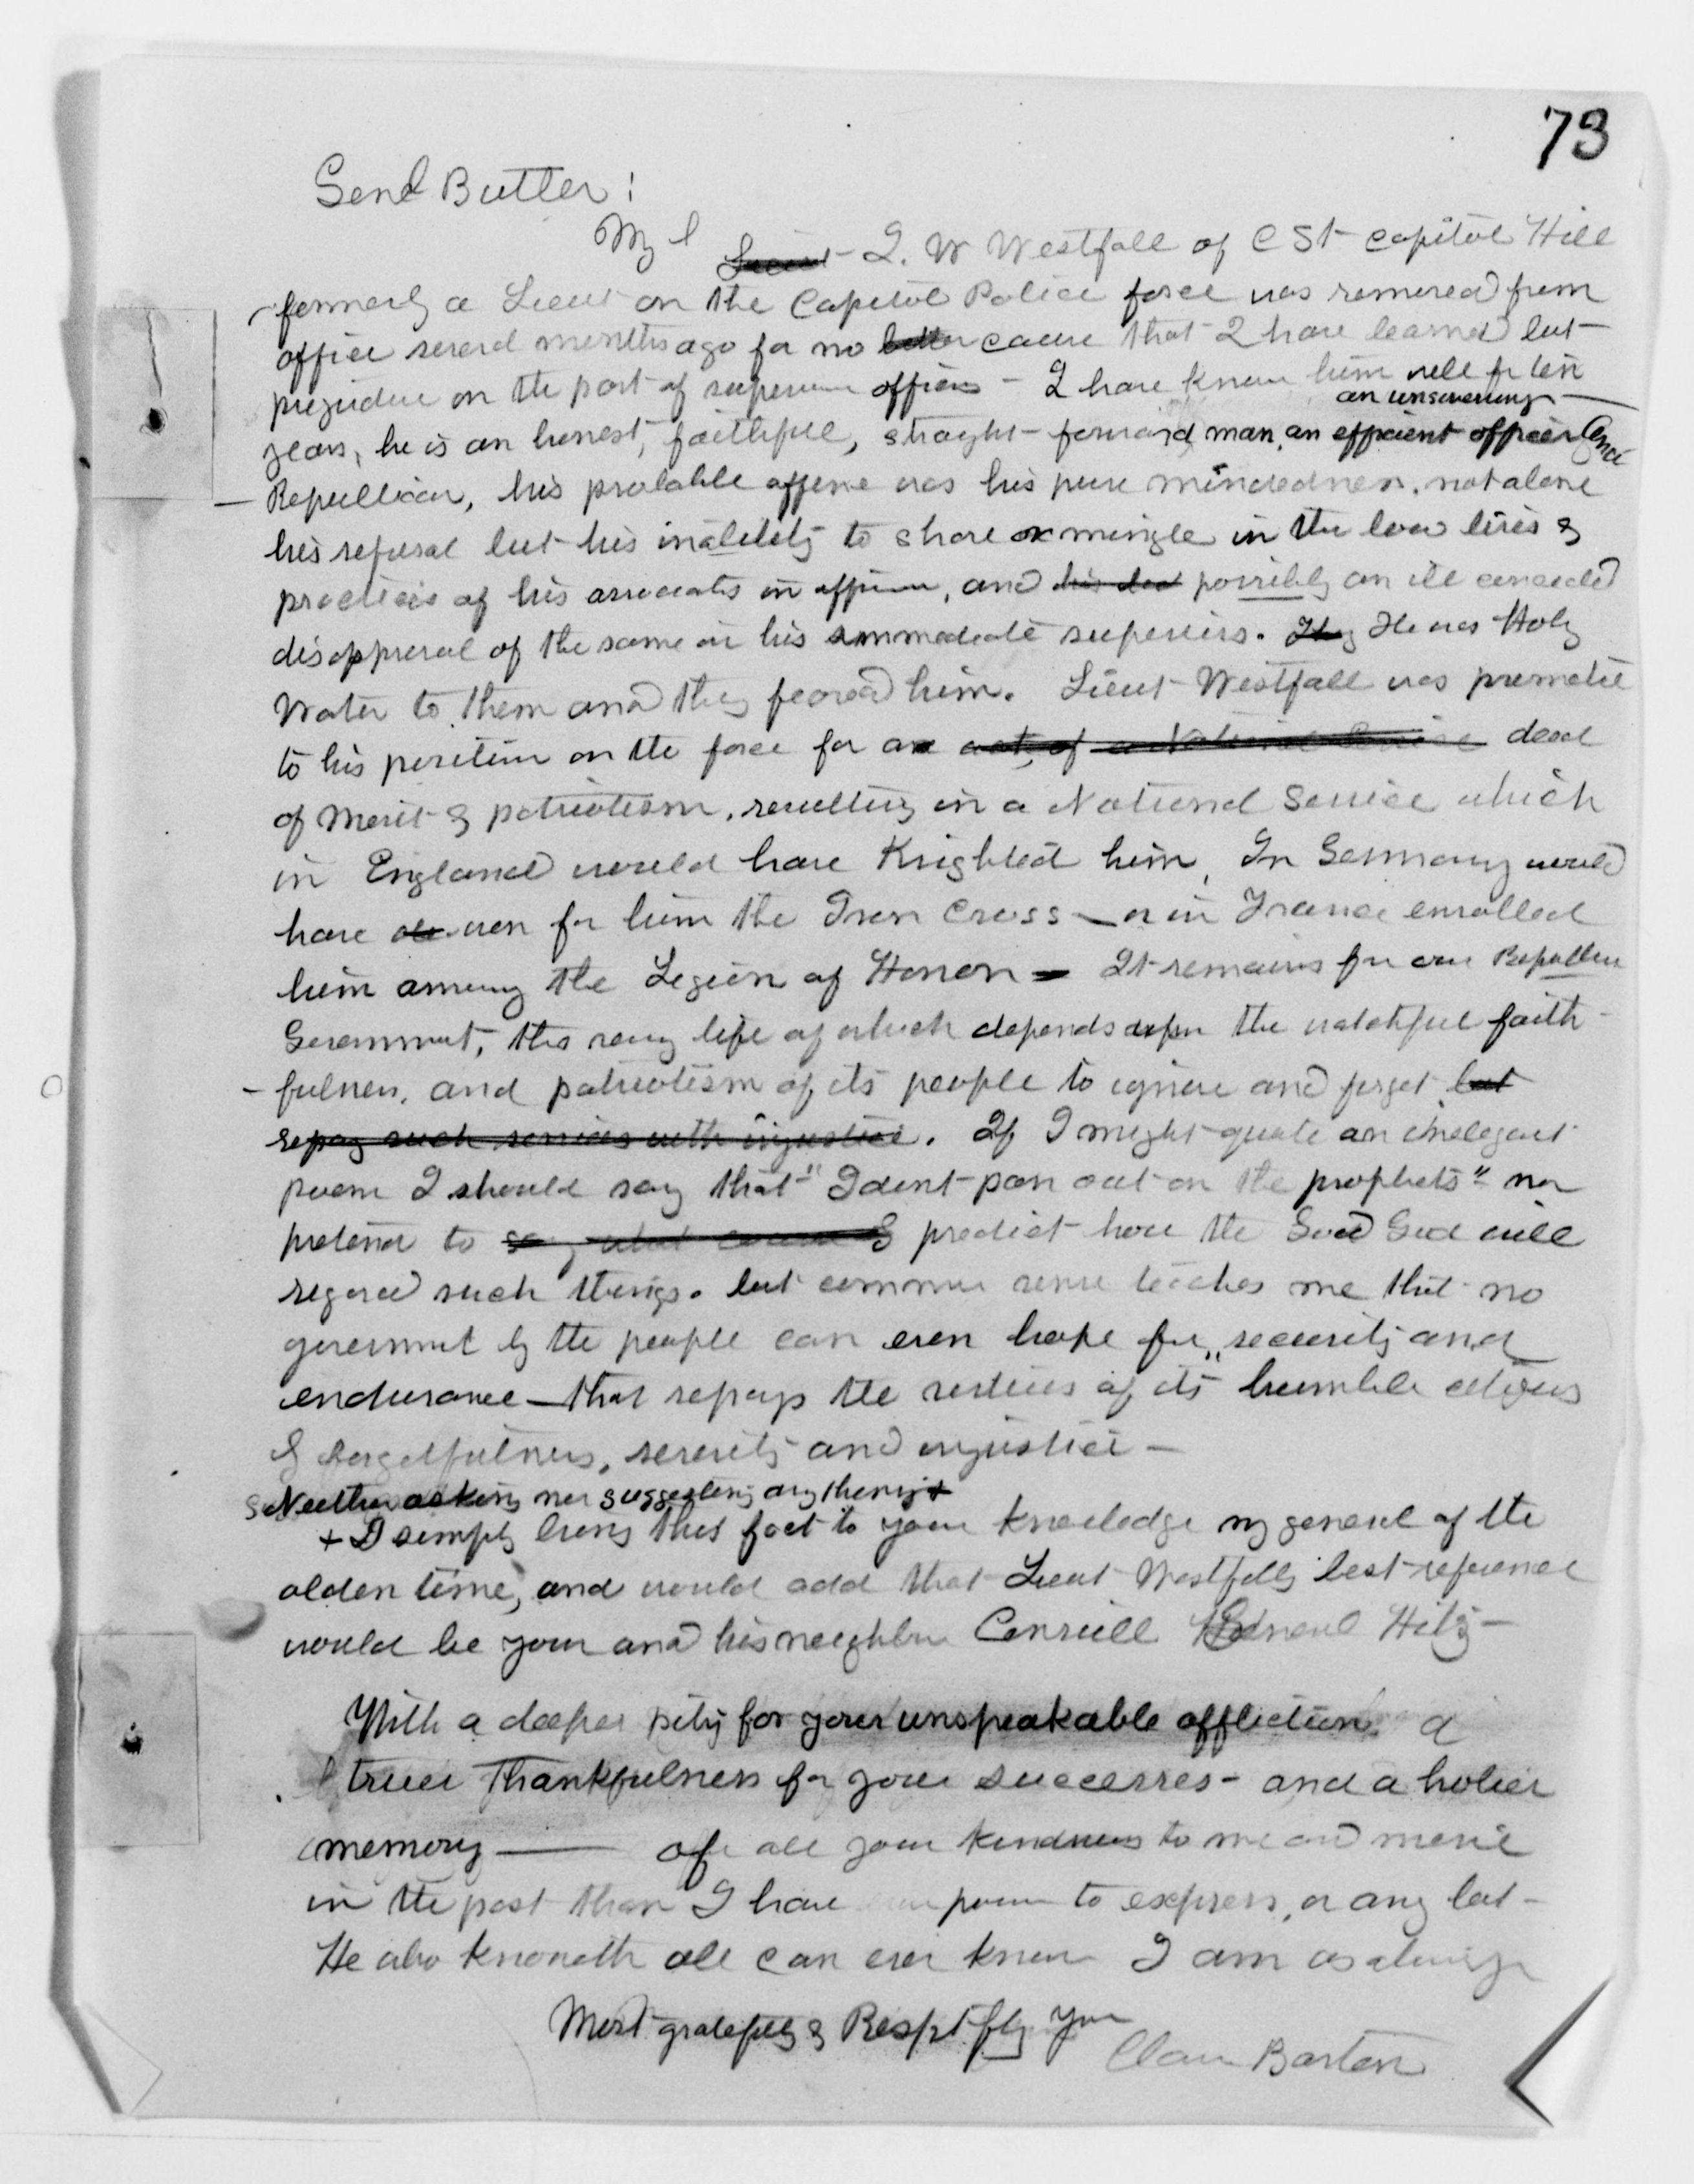 73
Genl Butler!
My l
Lieut - I. W Westfall of C St Capitol Hill
formerly a Lieut on the Capitol Police force was removed from
office several months ago for no better cause that I have learned but
prejudice on the part of superior officers - I have known him well for ten
an unswerving
years, he is an honest, faithful, straght-forward man, an efficient officer and
Republican, his probable offense was his pure mindedness, not alone
his refusal but his inability to share or mingle in the low lives &
practices of his associates in office, and his possibly an ill concealed
disapproval of the same in his immediate superiors. They He was Holy
Water to them and they feared him. Lieut Westfall was promoted
to his position on the force for an act, of a National Service deed
of Merit & patriotism, resulting in a National Service which
in England would have Knighted him, In Germany would
have won for him the Iron Cross - or in France enrolled
him among the Legion of Honor - It remains for our Republican
Government, the very life of which depends upon the watchful faith-
fulness, and patriotism of its people to ignore and forget but
repay such services with injustice. If I might quote an inelegant
poem I should say that "I dont pan out on the prophets" nor
pretend to say what predict how the Good God will
regard such things. but common sense teaches me that no
government by the people can even hope for, security and
endurance - that repays the virtues of its "humble citizens
by forgetfulness, severity and injustice -
Neither asking nor suggesting anything +
+ I simply bring this fact to your knowledge my general of the
olden time, and would add that Lieut Westfalls best reference
would be your and his neighbor Consul General Hitz -
With a deeper pity for your unspeakable affliction a
truer Thankfulness for your successes - and a holier
memory - of all your kindness to me and mine
in the past than I have ever power to express, or any but -
He who knoweth all can ever know I am as always
Most gratefully & Respt fly Your
Clara Barton